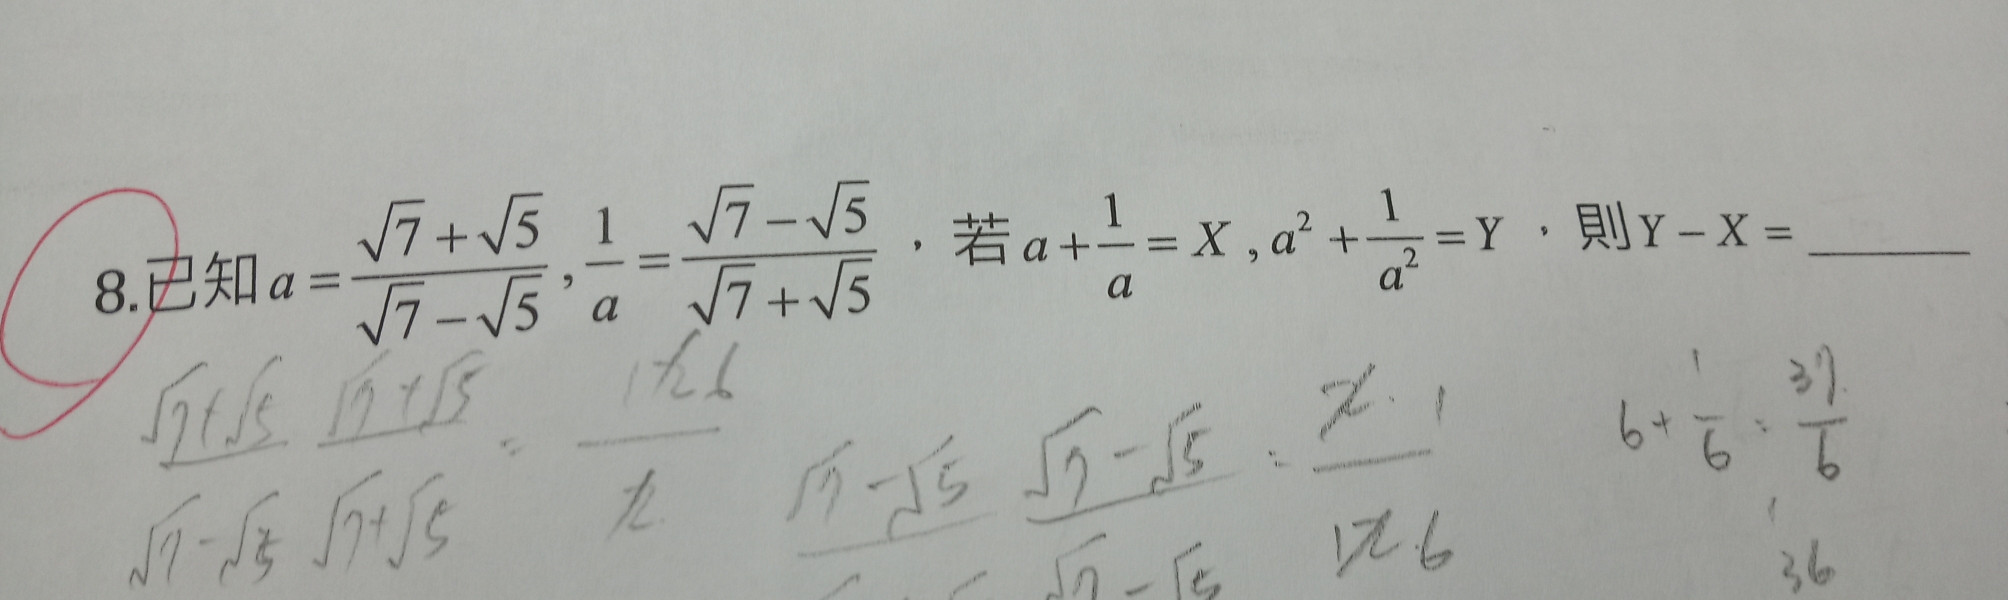 8.已知 a = (√7 + √5)/(√7 − √5) , 1/a = (√7 − √5)/(√7 + √5) , 若 a + 1/a = X , a² + 1/a² = Y , 則 Y − X = ______
√7+√5 √7+√5 = 12 6
√7−√5 √7+√5 2
√7−√5 √7−√5 = 2 1
√7−√5 12 6
6+ 1/6 = 37/6
1
36